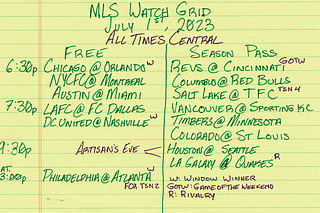 MLS Watch Grid
July 1st, 2023
All Times Central
Free
Season Pass
6:30p
Chicago @ Orlando W
NYCFC @ Montreal
Austin @ Miami
Revs @ Cincinnati GOTW
Columbus @ Red Bulls
Salt Lake @ TFC TSN4
7:30p
LAFC @ FC Dallas
DC United @ Nashville W
Vancouver @ Sporting KC
Timbers @ Minnesota
Colorado @ St Louis
9:30p
Artisan's Eve
Houston @ Seattle
LA Galaxy @ Quakes R
AT.
3:00p
Philadelphia @ Atlanta W
FOX TSN2
W: Window Winner
GOTW: Game of the Weekend
R: Rivalry